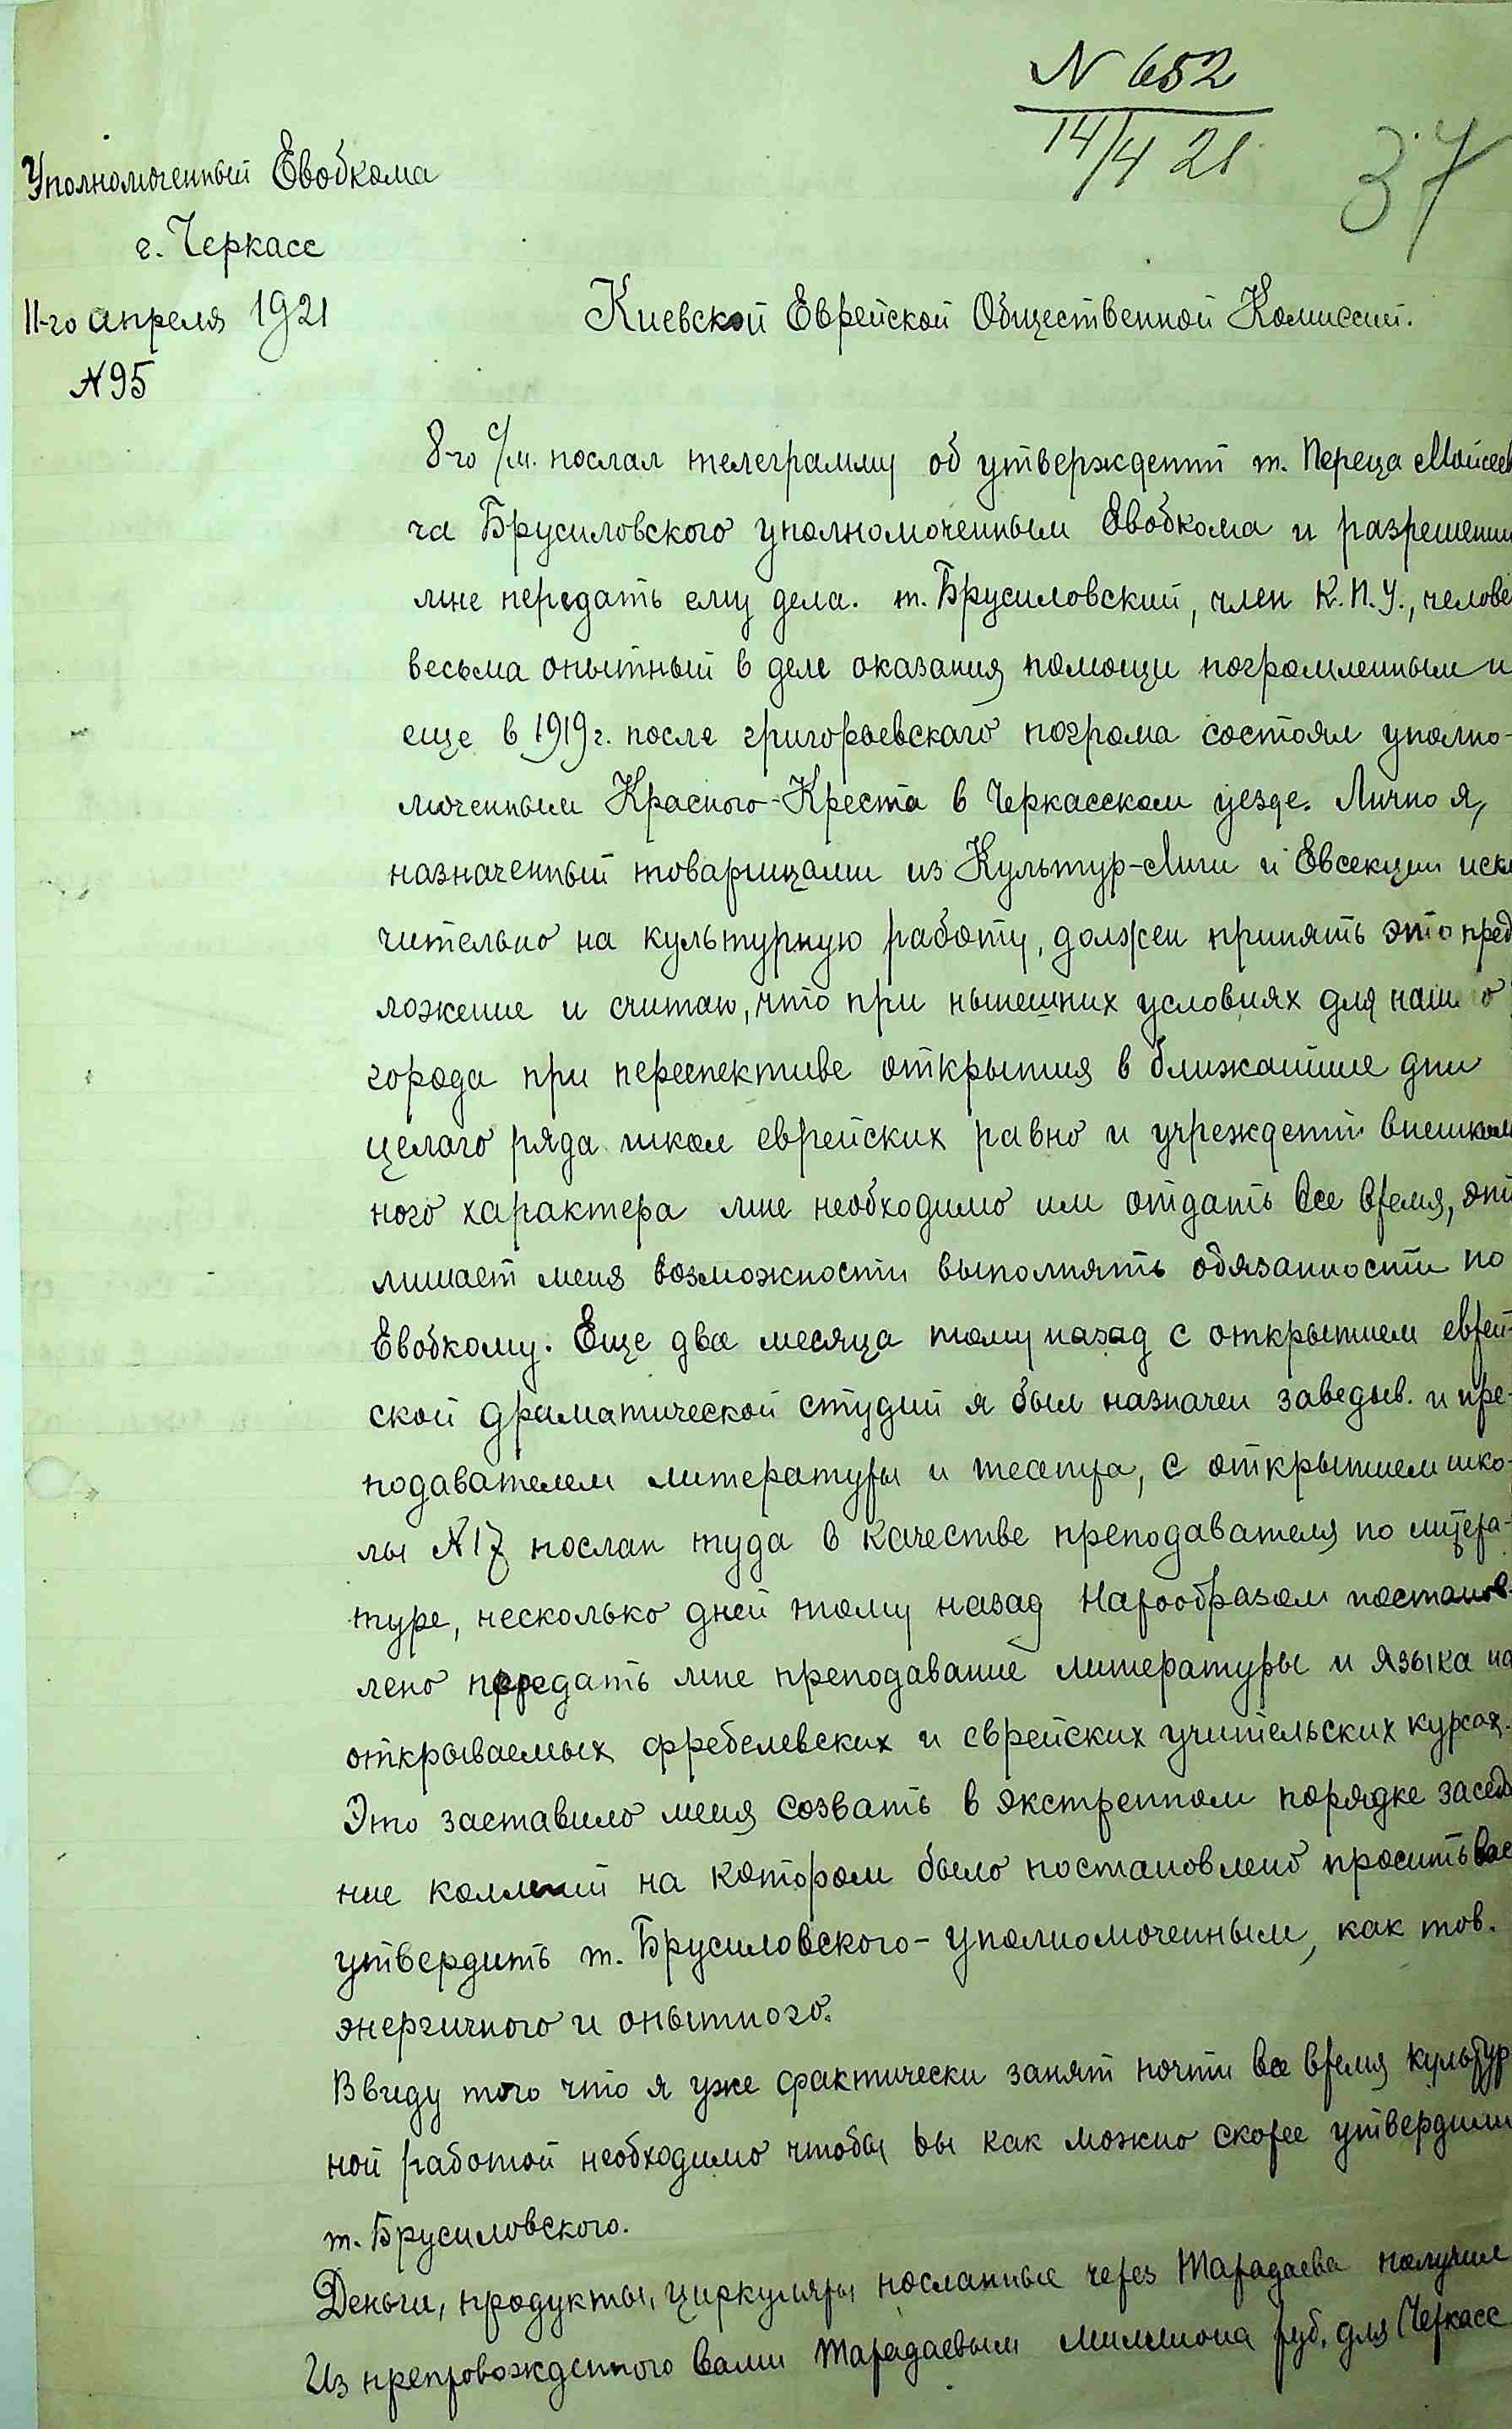 N 652
14/4 21
37
Уполномоченный Евобкома
г. Черкасс
11-го апреля 1921
N 95
Киевской Еврейской Общественной Комиссии.
8-го с/м. послал телеграмму об утверждении т. Переца Мойсеев
ча Брусиловского уполномоченным Евобкома и разрешении
мне передать ему дела. т. Брусиловский, член К.П.У., челове
весьма опытный в деле оказания помощи погромленным и
еще в 1919 г. после григорьевскаго погрома состоял уполно-
моченным Красного-Креста в Черкасском уезде. Лично я,
назначенный товарищами из Культур-Лиги и Евсекции искл
чительно на культурную работу, должен принять это пред
ложение и считаю, что при нынешних условиях для наш о
города при перспективе открытия в ближайшие дни
целаго ряда школ еврейских равно и учреждений внешколь
ного характера мне необходимо им отдать все время, это
лишает меня возможности выполнять обязанности по
Евобкому. Еще два месяца тому назад с открытием еврей-
ской драматической студии я был назначен заведыв. и пре-
подавателем литературы и театра, с открытием шко-
лы N 17 послан туда в качестве преподавателя по литера-
туре, несколько дней тому назад Нарообразом постанов-
лено передать мне преподавание литературы и языка на
открываемых фребелевских и еврейских учительских курсах.
Это заставило меня созвать в экстренном порядке засед
ние коллегии на котором было постановлено просить вас
утвердить т. Брусиловского - уполномоченным, как тов.
энергичного и опытного.
Ввиду того что я уже фактически занят почти все время культур
ной работой необходимо чтобы вы как можно скорее утвердили
т. Брусиловского.
Деньги, продукты, циркуляры посланные через Тарадаева получил
Из препровожденного вами Тарадаевым миллиона руб. для Черкасс